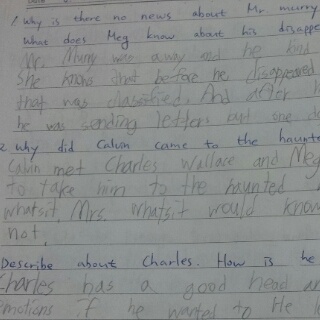 1. Why is there no news about Mr murry
What does Meg know about his disappe
Mr. Murry was away and he
She knows that before he disappeared
that was classified. And after h
he was sending letters until one d
2. why did Calvin came to the haunte
Calvin met Charles Wallace and Meg
to take him to the haunted
whatsit, Mrs. whatsit would know
not.
Describe about Charles. How is he
Charles has a good head an
emotions if he wanted to He